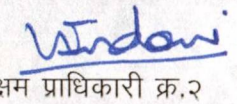 क्षम प्राधिकारी क्र.२